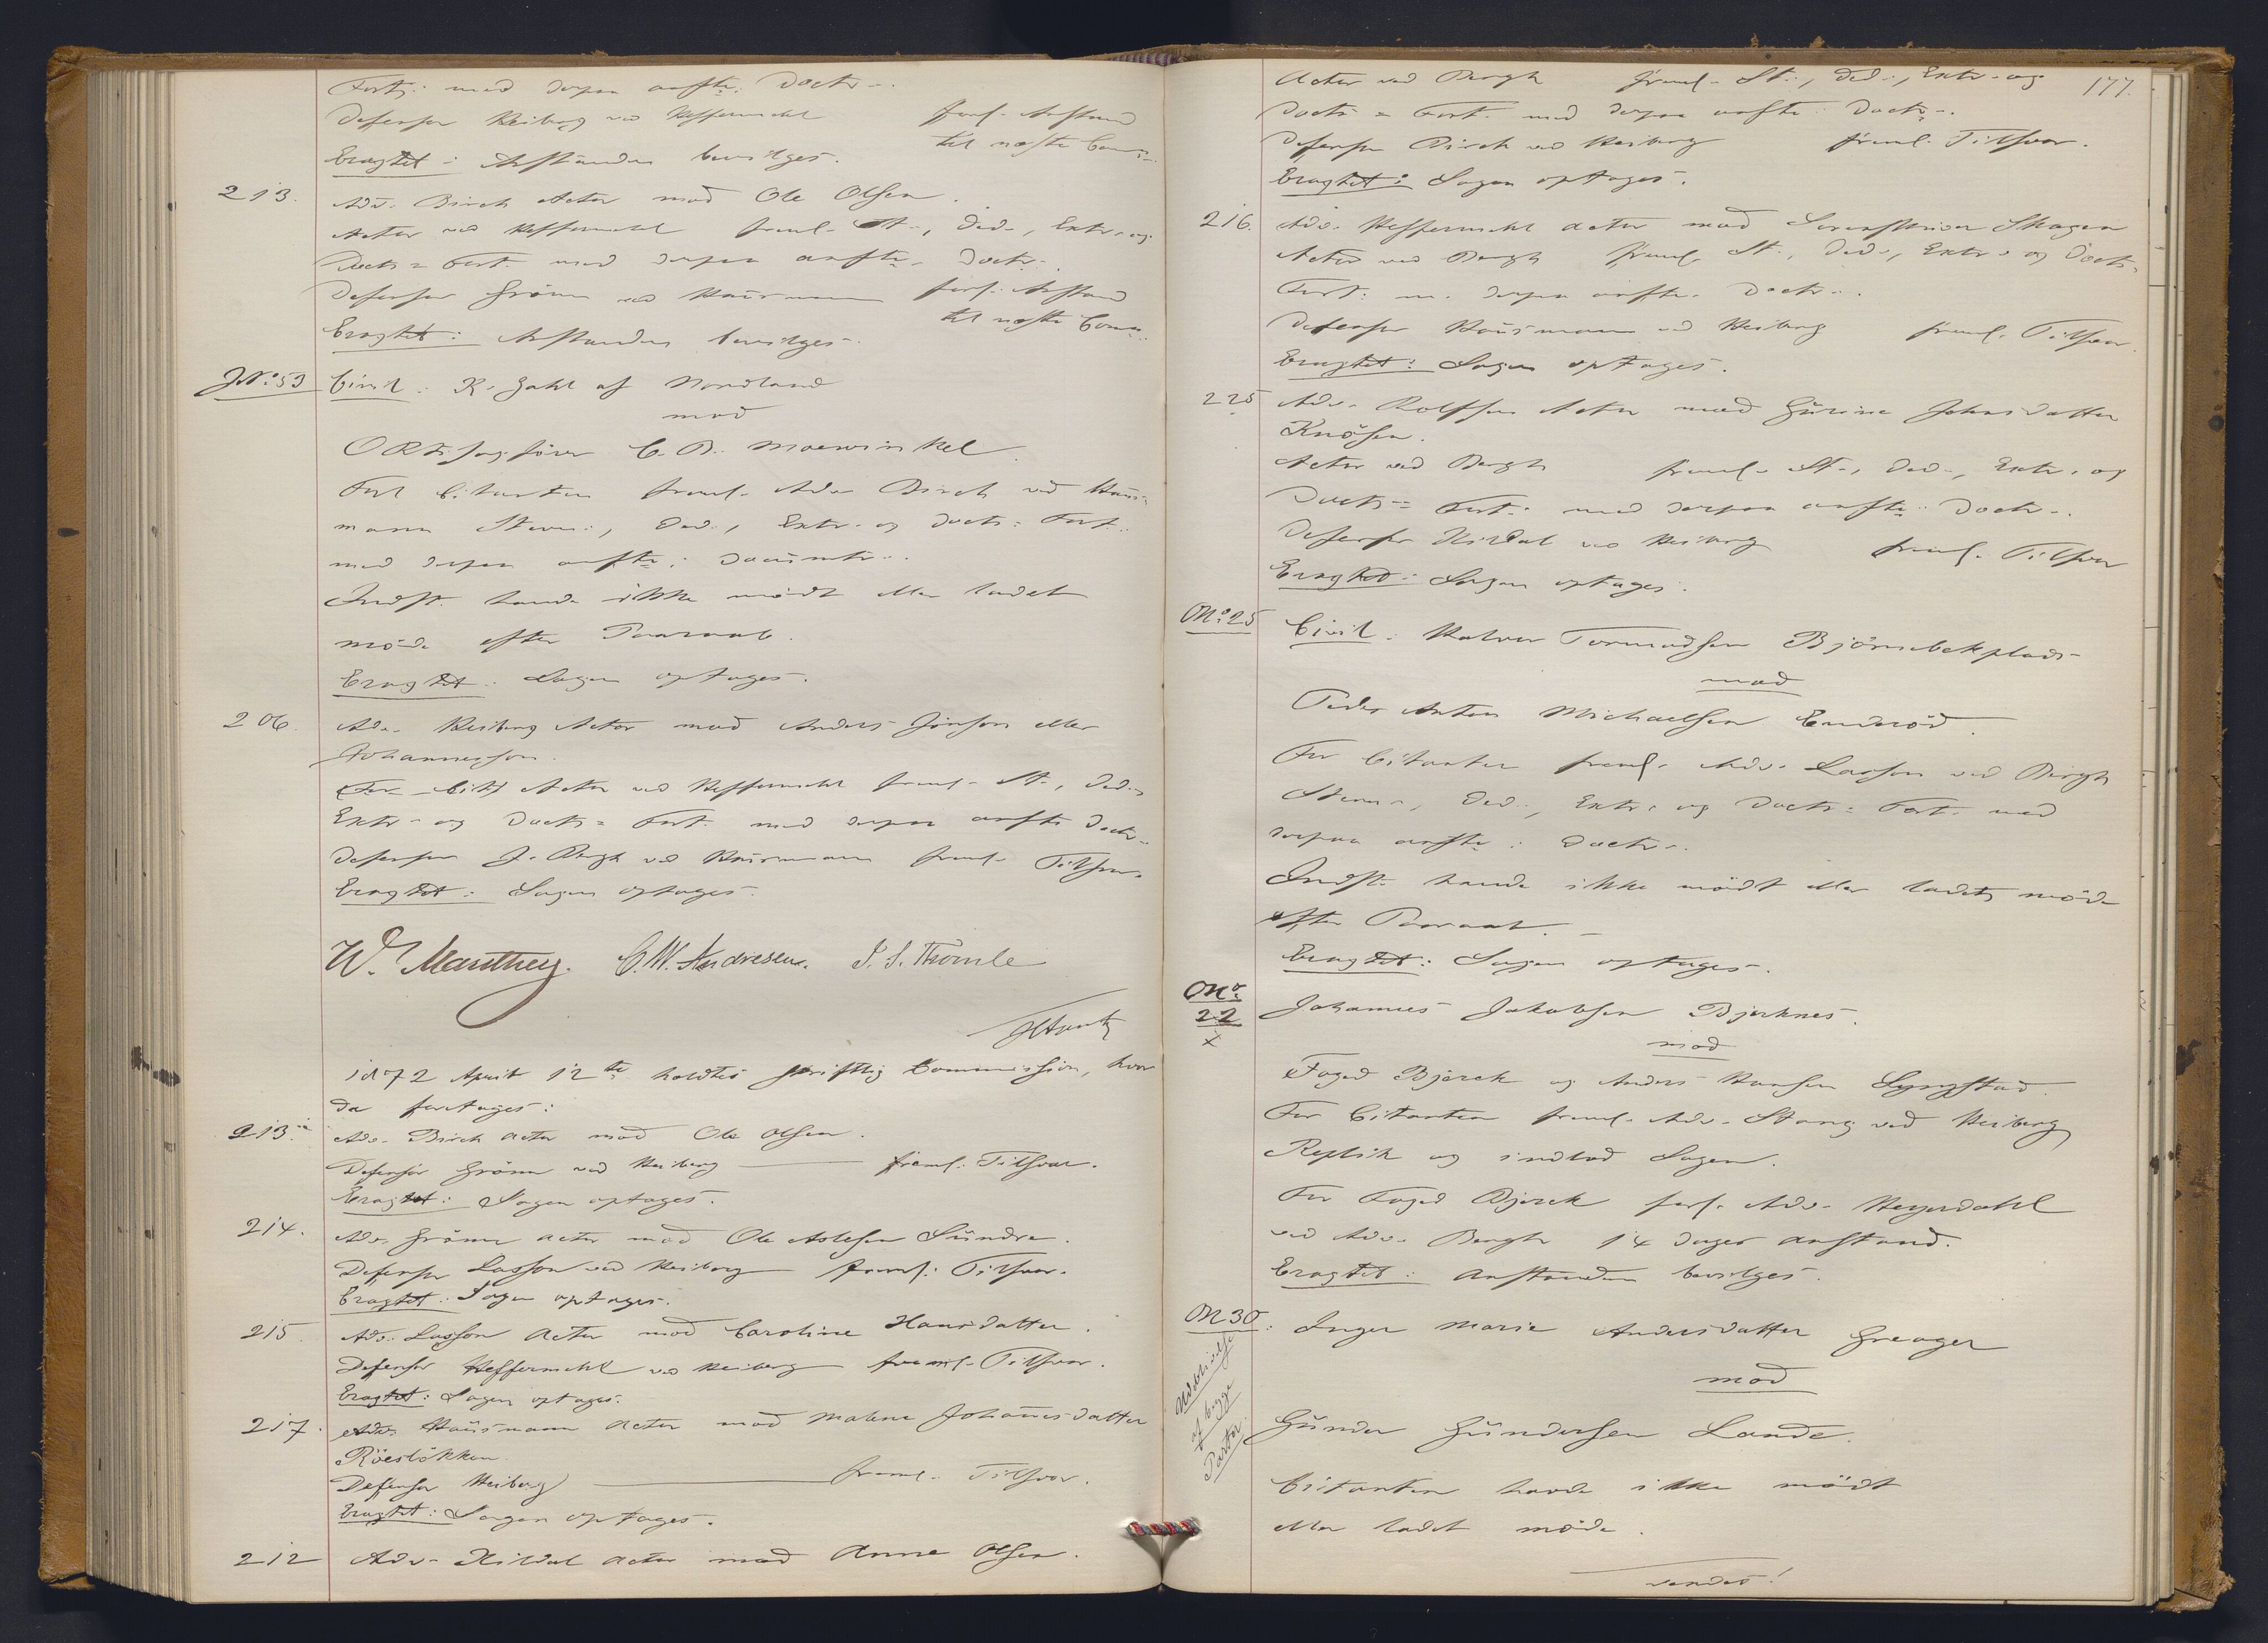 Fort: med derpaa anfte: Doctr.
Defensor Heiberg ved Heffermehl forl. Anstand
til næste Comm.
Eragtet: Anstanden bevilges.
213. Adv. Birch Actor mod Ole Olsen.
Actor ved Heffermehl freml. St., Ded., Extr. og
Docts= Fort. med derpaa anfte. Doctr.
Defensor Grönn ved Hausmann forl. Anstand
til næste Comm.
Eragtet: Anstanden bevilges.
J. No. 53 Civil: K. Zahl af Nordland
mod
O R Sagförer C. D. Moewinkel.
For Citanten freml. Adv. Birch ved Haus=
mann Stevn., Ded., Extr. og Docts= Fort.
med derpaa anfte: Documtr.
Indst. havde ikke mödt eller ladet
möde efter Paaraab.
Eragtet: Sagen optages.
206. Adv. Heiberg Actor mod Anders Jönson eller
Johannesson.
For Cit Actor ved Heffermehl freml. St., Ded.,
Extr. og Docts= Fort. med derpaa anfte Doctr.
Defensor J. Bergh ved Hausmann freml. Tilsvar.
Eragtet: Sagen optages.
W. Manthey. C. W. Andresen. J. S. Thomle
1872 April 12te holdtes skriftlig Commission, hvor
da foretages:
213. Adv. Birch Actor mod Ole Olsen.
Defensor Grönn ved Heiberg freml. Tilsvar.
Eragtet: Sagen optages.
214. Adv. Grönn Actor mod Ole Aslesen Sundre.
Defensor Lasson ved Heiberg freml. Tilsvar.
Eragtet: Sagen optages.
215. Adv. Lasson Actor mod Caroline Hansdatter.
Defensor Heffermehl ved Heiberg freml. Tilsvar.
Eragtet: Sagen optages.
217. Adv. Hausmann Actor mod Malene Johannesdatter
Röeslökken.
Defensor Heiberg freml. Tilsvar.
Eragtet: Sagen optages.
212 Adv. Hildal Actor mod Anne Olsen.
177.
Actor ved Bergh freml. St., Ded., Extr. og
Docts= Fort. med derpaa anfte. Doctr.
Defensor Birch ved Heiberg freml. Tilsvar.
Eragtet: Sagen optages.
216. Adv. Heffermehl Actor mod Sorenskriver Skagen
Actor ved Bergh freml. St., Ded., Extr. og Docts=
Fort. m. derpaa anfte. Doctr.
Defensor Hausmann ved Heiberg freml. Tilsvar.
Eragtet: Sagen optages.
225 Adv. Rolfsen Actor mod Gurine Johnsdatter
Knösen.
Actor ved Bergh freml. St., Ded., Extr. og
Docts= Fort. med derpaa anfte. Doctr.
Defensor Hildal ved Heiberg freml. Tilsvar
Eragtet: Sagen optages.
No. 25 Civil: Halvor Tormodsen Björnebekplads
mod
Peder Anton Michaelsen Enderöd.
For Citanten freml. Adv. Lasson ved Bergh
Stevn., Ded., Extr. og Docts= Fort. med
derpaa anfte: Doctr.
Indst. havde ikke mödt eller ladet möde
efter Paaraab.
Eragtet: Sagen optages.
No. 22 x Johannes Jakobsen Bjerknes.
mod
Foged Bjerck og Anders Hansen Lyngstad.
For Citanten freml. Adv. Stang ved Heiberg
Replik og indlod Sagen.
For Foged Bjerck forl. Adv. Heyerdahl
ved Adv. Bergh 14 Dages Anstand.
Eragtet: Anstanden bevilges.
No 30: Inger Marie Andersdatter Greager
mod
Udeblivelse
af begge
Parter.
Gunder Gundersen Lande.
Citanten havde ikke mödt
eller ladet möde.
vendes!